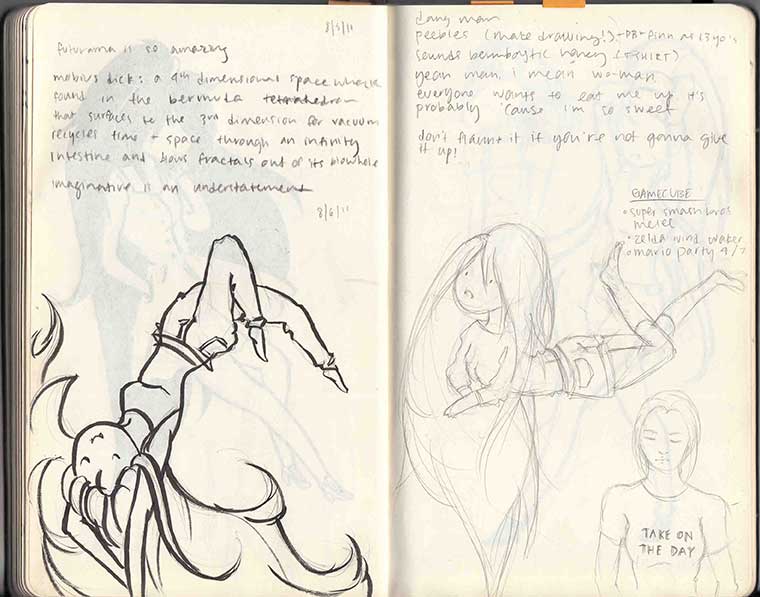 8/5/11
futurama is so amazing
mobius dick: a 4th dimensional space whale
found in the bermuda tetrahedron
that surfaces to the 3rd dimension for vacuum
recycles time + space through an infinity
intestine and blows fractals out of its blowhole
imaginative is an understatement
8/6/11
dang man
peebles (make drawing!) - PB + Finn as 13 yo's
sounds bamboytic honey (T-SHIRT)
yeah man, i mean wo-man
everyone wants to eat me up it's
probably 'cause i'm so sweet
don't flaunt it if you're not gonna give
it up!
GAMECUBE
• super smash bros
melee
• zelda wind waker
• mario party 4/7
TAKE ON
THE DAY